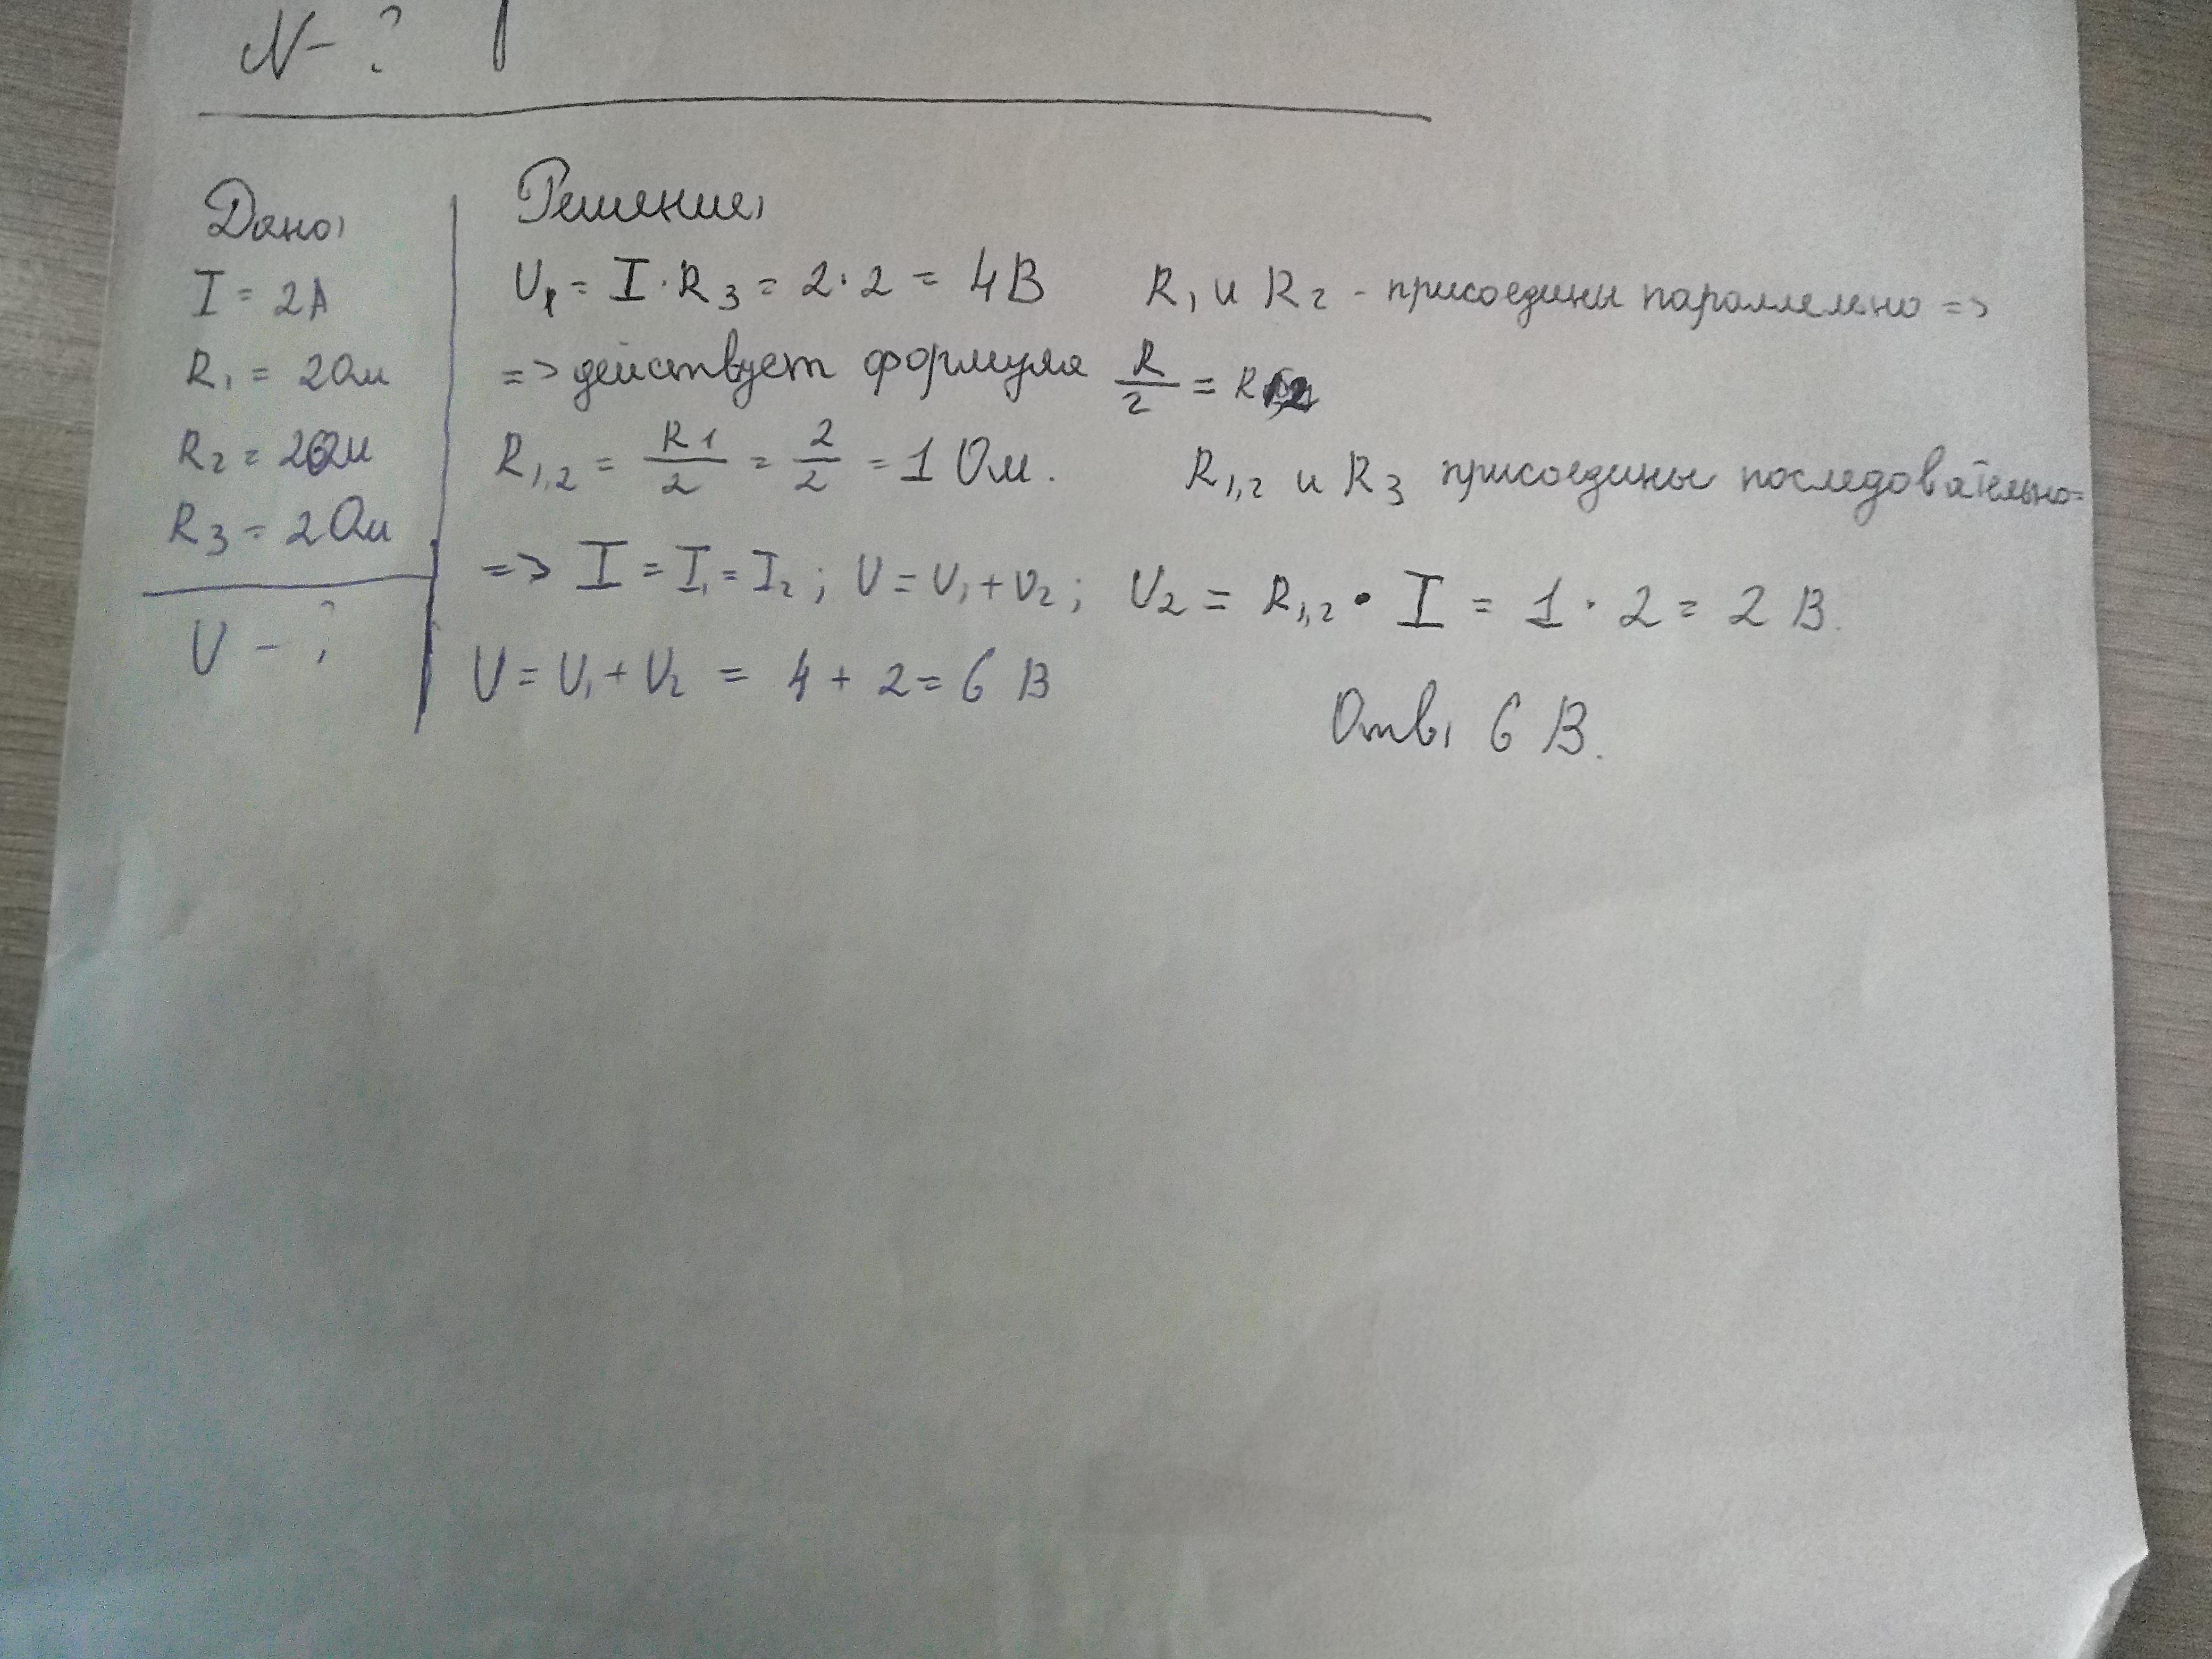 N - ?
Дано:
I = 2А
R₁ = 2Ом
R₂ = 2Ом
R₃ = 2Ом
U - ?
Решение:
U₁ = I · R₃ = 2 · 2 = 4В R₁ и R₂ - присоедины параллельно =>
=> действует формула R/2 = R
R₁,₂ = R1/2 = 2/2 = 1 Ом. R₁,₂ и R₃ присоедины последовательно=
=> I = I₁ = I₂; U = U₁ + U₂; U₂ = R₁,₂ · I = 1 · 2 = 2 В.
U = U₁ + U₂ = 4 + 2 = 6 В
Отв: 6 В.